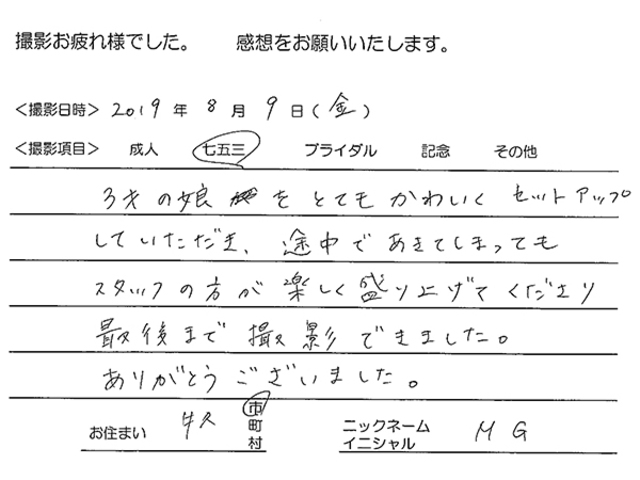 撮影お疲れ様でした。 感想をお願いいたします。
<撮影日時> 2019 年 8 月 9 日(金)
<撮影項目> 成人 七五三 ブライダル 記念 その他
3才の娘をとてもかわいく セットアップ
していただき、途中であきてしまっても
スタッフの方が楽しく盛り上げてくださり
最後まで撮影できました。
ありがとうございました。
お住まい 牛久 市町村 ニックネーム イニシャル M G